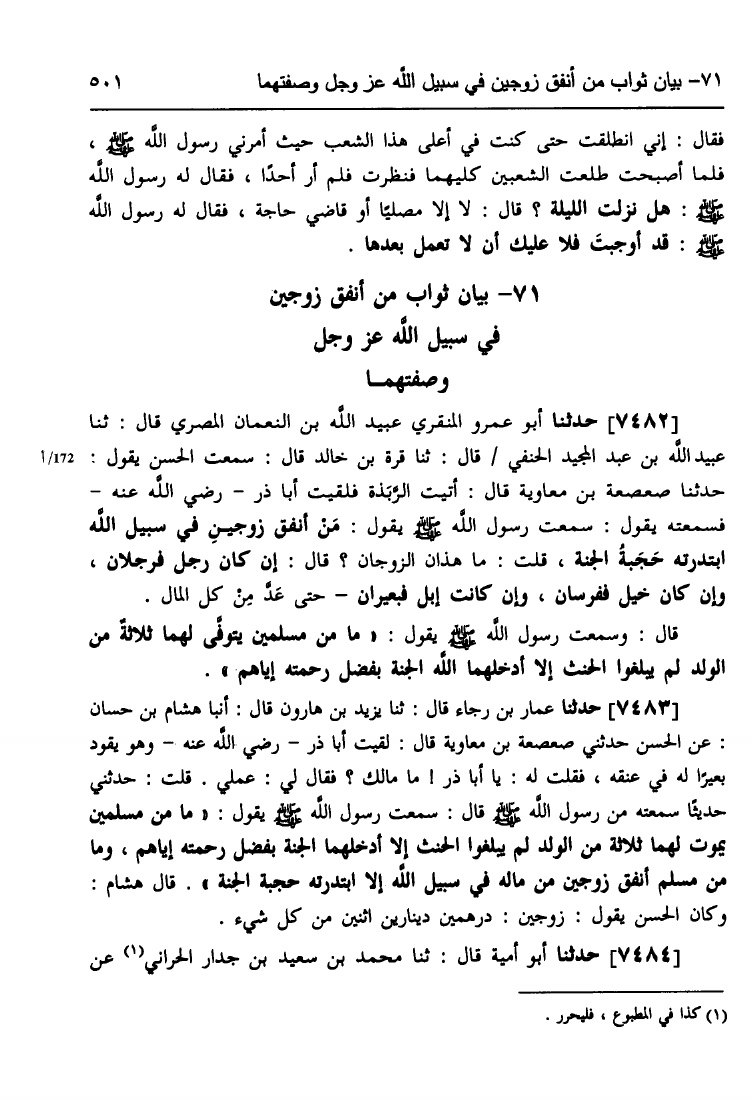 ٧١- بيان ثواب من أنفق زوجين في سبيل اللَّه عز وجل وصفتهما ٥٠١
فقال : إني انطلقت حتى كنت في أعلى هذا الشعب حيث أمرني رسول اللَّه ﷺ ،
فلما أصبحت طلعت الشعبين كليهما فنظرت فلم أر أحدًا ، فقال له رسول اللَّه
ﷺ : هل نزلت الليلة ؟ قال : لا إلا مصليًا أو قاضي حاجة ، فقال له رسول اللَّه
ﷺ : قد أوجبتَ فلا عليك أن لا تعمل بعدها .
٧١- بيان ثواب من أنفق زوجين
في سبيل اللَّه عز وجل
وصفتهمـا
[٧٤٨٢] حدثنا أبو عمرو المنقري عبيد اللَّه بن النعمان المصري قال : ثنا
عبيد اللَّه بن عبد المجيد الحنفي / قال : ثنا قرة بن خالد قال : سمعت الحسن يقول : 172/أ
حدثنا صعصعة بن معاوية قال : أتيت الرَّبَذة فلقيت أبا ذر - رضي اللَّه عنه -
فسمعته يقول : سمعت رسول اللَّه ﷺ يقول : مَنْ أنفق زوجيـنِ في سبيل اللَّه
ابتدرته حَجَبةُ الجنة ، قلت : ما هذان الزوجان ؟ قال : إن كان رجل فرجلان ،
وإن كان خيل ففرسان ، وإن كانت إبل فبعيران - حتى عَدَّ مِنْ كل المال .
قال : وسمعت رسول اللَّه ﷺ يقول : « ما من مسلمين يتوفَّى لهما ثلاثةٌ من
الولد لم يبلغوا الحنث إلا أدخلهما اللَّه الجنة بفضل رحمته إياهم » .
[٧٤٨٣] حدثنا عمار بن رجاء قال : ثنا يزيد بن هارون قال : أنبا هشام بن حسان
: عن الحسن حدثني صعصعة بن معاوية قال : لقيت أبا ذر - رضي اللَّه عنه - وهو يقود
بعيرًا له في عنقه ، فقلت له : يا أبا ذر ! ما مالك ؟ فقال لي : عملي . قلت : حدثني
حديثًا سمعته من رسول اللَّه ﷺ قال : سمعت رسول اللَّه ﷺ يقول : « ما من مسلمين
يموت لهما ثلاثة من الولد لم يبلغوا الحنث إلا أدخلهما الجنة بفضل رحمته إياهم ، وما
من مسلم أنفق زوجين من ماله في سبيل اللَّه إلا ابتدرته حجبة الجنة » . قال هشام :
وكان الحسن يقول : زوجين : درهمين دينارين اثنين من كل شيء .
[٧٤٨٤] حدثنا أبو أمية قال : ثنا محمد بن سعيد بن جدار الحراني(١) عن
(١) كذا في المطبوع ، فليحرر .